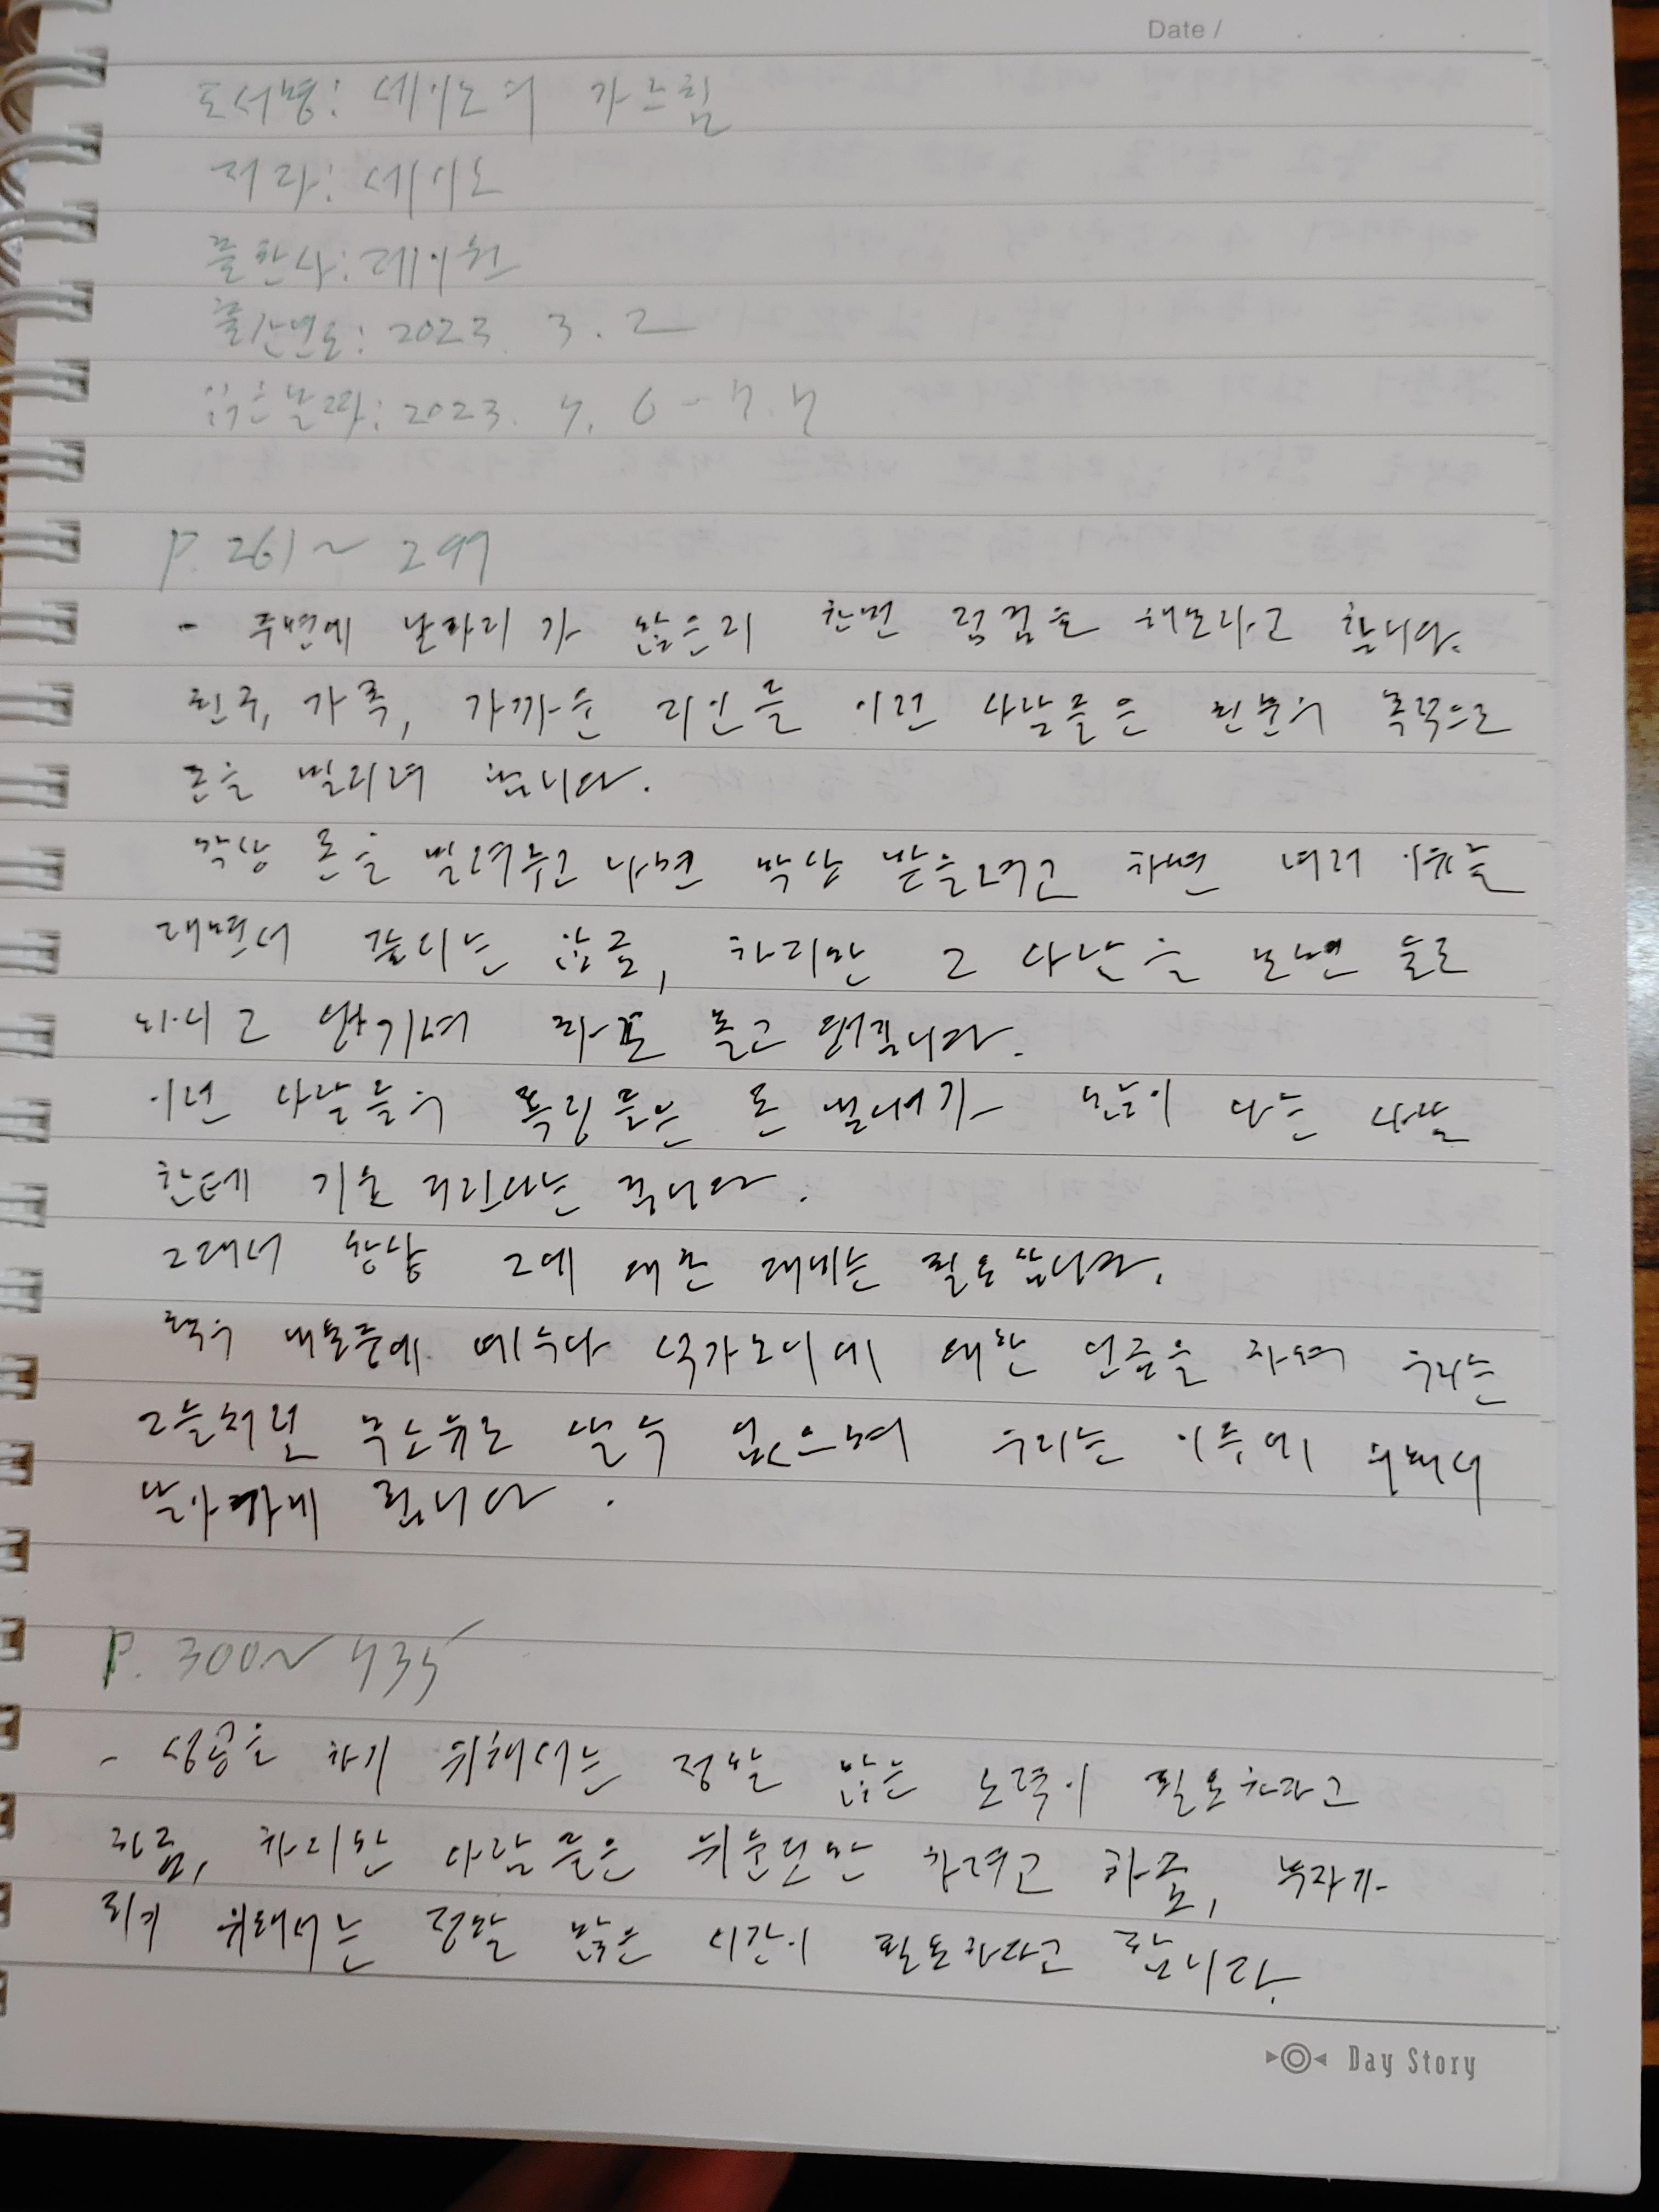 Date /
도서명: 세이노의 가르침
저자: 세이노
출판사: 데이원
출간연도: 2023. 3. 2
읽은날짜: 2023. 4. 6 - 4. 4
P. 261 ~ 299
- 주변에 날파리가 많은지 한번 점검을 해보라고 합니다.
친구, 가족, 가까운 지인들 이런 사람들은 친분의 목적으로
돈을 빌리려 합니다.
막상 돈을 빌려주고 나면 막상 받을려고 하면 여러 이유를
대면서 갚지는 않음, 하지만 그 사람을 보면 놀러
다니고 고 있습니다.
이런 사람들의 특징들은 돈 빌려기 많이 다는 사람
한테 기을 다는 겁니다.
그래서 항상 그에 대한 대비는 필요합니다.
책의 내용중에 예수나 석가모니에 대한 언급을 하며 우리는
그들처럼 무소유로 살 수 없으며 우리는 이후에 위해서
살아가게 됩니다.
P. 300 ~ 435
- 성공을 하기 위해서는 정말 많은 노력이 필요하다고
하지만 사람들은 하려고 하고, 부자가
되기 위해서는 정말 많은 시간이 필요하다고 합니다.
Day Story